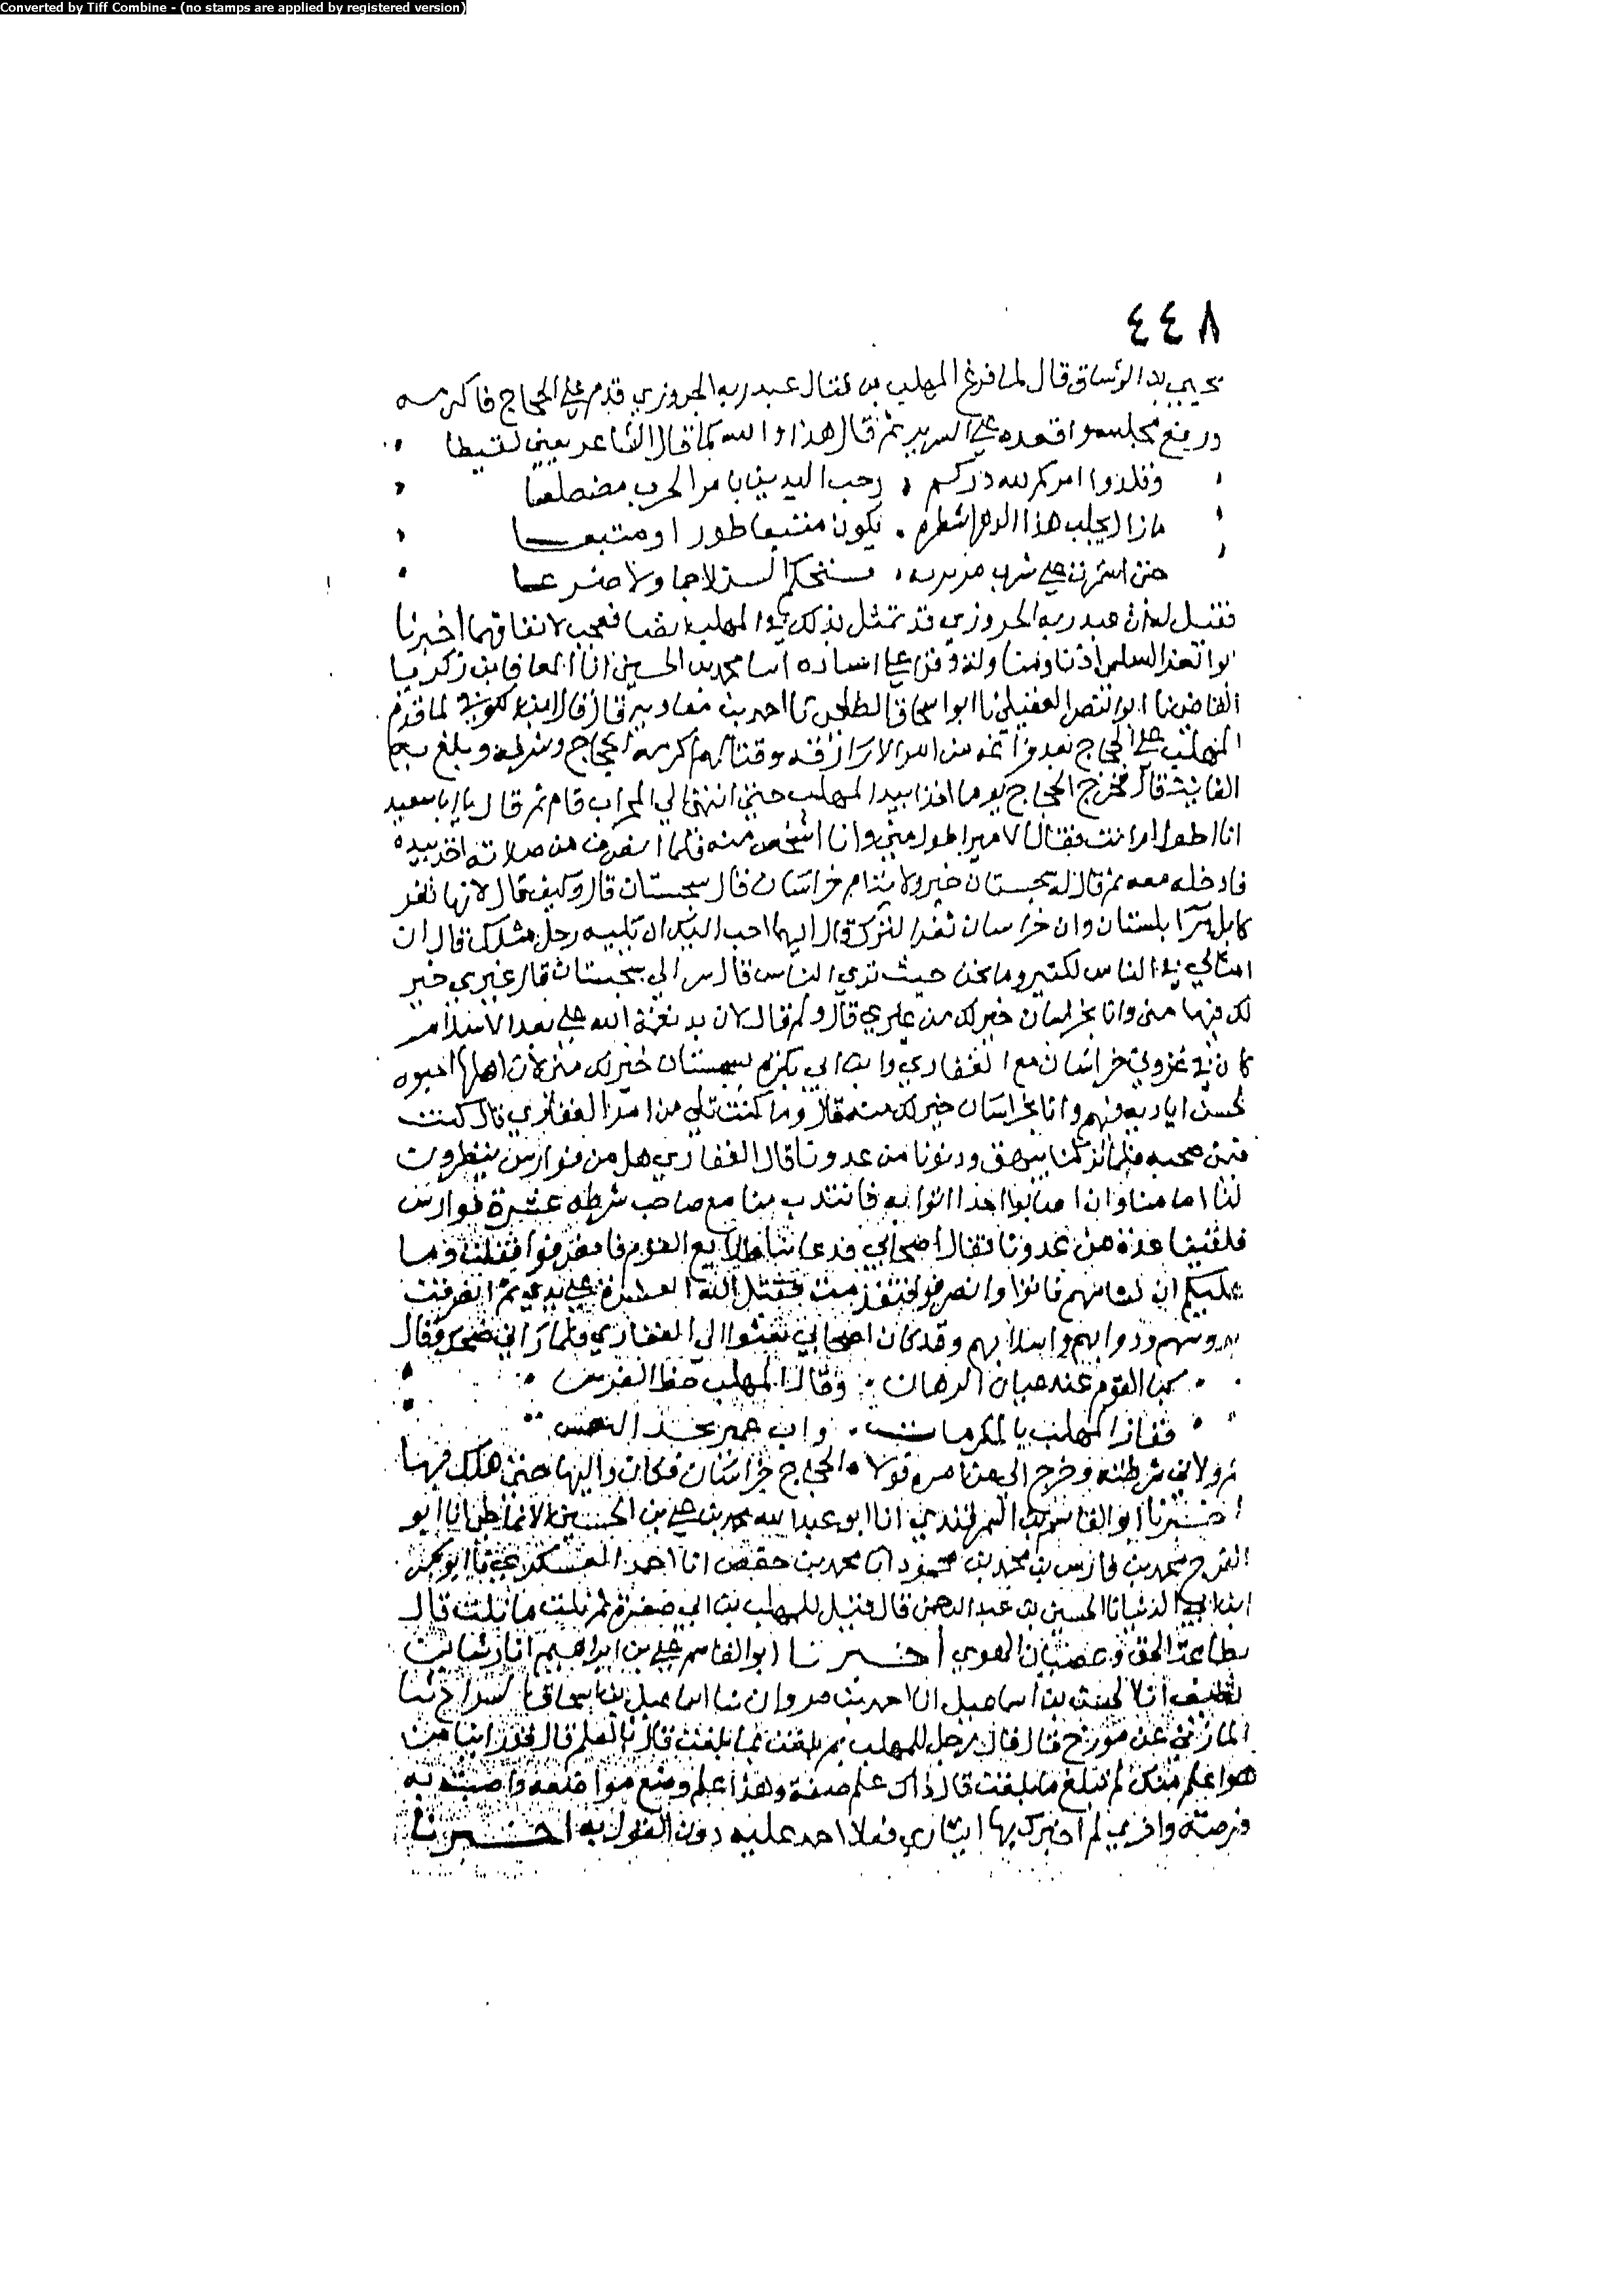 Converted by Tiff Combine - (no stamps are applied by registered version)
٤٤٨
يحيى بن الوشاق قال لما فرغ المهلب من قتال عبد ربه الحروري قدم على الحجاج فاكرمه
ورفع مجلسه واقعده على السرير ثم قال هذا والله كما قال الشاعر يعني لقيطا
وقلدوا امركم لله دركم رحب اليدين بامر الحرب مضطلعا
مازال يحلب هذا الدهر اشطره يكون متبعا طورا ومتبعا
حتى استمرت على شرب مريرته مستحكم السن لا قحما ولا ضرعا
فقيل له ان عبد ربه الحروري قد تمثل بذلك في المهلب ايضا فعجب لاتفاقهما اخبرنا
ابو العز السلمي اذنا ومناولة وقرا علي اسناده انا محمد بن الحسين انا المعافا بن زكريا
القاضي نا ابو النضر العقيلي نا ابو اسحاق الطلحي نا احمد بن معاوية قال قال لما قدم
المهلب على الحجاج بعد فراغه من امر الازارقة وقتالهم اكرمه الحجاج وشرفه وبلغ به
قال فخرج الحجاج يوما اخذا بيد المهلب حتى انتهى الى المحراب قام ثم قال يا ابا سعيد
انا اطول ام انت فقال الامير اطول مني وانا اشخص منه فلما انصرف من صلاته اخذ بيده
فادخله معه ثم قال له سجستان خير ولاية ام خراسان قال سجستان قال وكيف قال لانها ثغر
كابل وزابلستان وان خراسان ثغر الترك قال ايهما احب اليك ان يليه رجل مثلك قال ان
امثالي في الناس لكثير وما نحن حيث ترى الناس قال سر الى سجستان قال غيري خير
لك فيها مني وانا بخراسان خير لك من غيري قال ولم قال لان بدء نعمة الله علي بعد الاسلام
كان في غزوي خراسان مع الغفاري وابن ابي بكرة بسجستان خير لك مني لان اهلها احبوه
لحسن اياديه فيهم وانا بخراسان خير لك منه قال وما كنت تلي من امر الغفاري قال كنت
فيمن صحبه فلما نزلنا بيهق ودنونا من عدونا قال الغفاري هل من فوارس ينظرون
لنا اما منا وان اصابوا احدا اتوا به فانتدب منا مع صاحب شرطه عشرة فوارس
فلقينا عدة من عدونا فقال اصحابي قد عاينا طلايع القوم فانصرفوا فقلت وما
عليكم ان تشامهم فابوا وانصرفوا فقتل الله العشرة على يدي ثم انصرفت
برؤسهم ودوابهم واسلابهم وقد كان اصحابي نعوني الى الغفاري فلما راني ضحك وقال
كبا القوم عند عيان الرهان وقال المهلب حظ الفرس
ففاز المهلب بالمكرمات واب عمير بجد التعس
ثم ولاني شرطته وخرج الى مناصره فولاه الحجاج خراسان فكان واليها حتى هلك فيها
اخبرنا ابو القاسم بن السمرقندي انا ابو عبد الله محمد بن علي بن الحسين الانماطي انا ابو
الفرج محمد بن فارس بن محمد بن محمود انا محمد بن حفص انا احمد العسكري نا ابو بكر
ابن ابي الدنيا نا الحسين بن عبد الرحمن قال قيل للمهلب بن ابي صفرة بم نلت ما نلت قال
بطاعة الحق وعصيان الهوى اخبرنا ابو القاسم علي بن ابراهيم انا رشا بن
نظيف انا الحسن بن اسماعيل انا احمد بن مروان نا اسماعيل بن اسحاق السراج نا
المازني عن مورج قال قال رجل للمهلب بم بلغت ما بلغت قال بالعلم قال قد راينا من
هو اعلم منك لم يبلغ ما بلغت قال ذاك علم صفة وهذا علم وضع مواضعه واصبت به
فرصته واخرى لم اخبرك بها ايثاري فعلا احمد عليه دون القول به اخبرنا